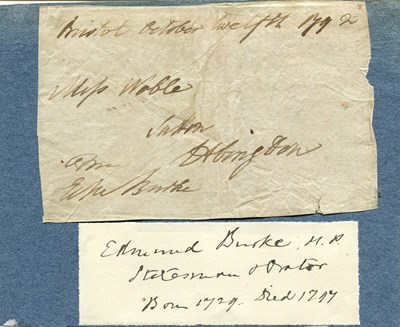 Bristol October twelfth 1792
Miss Noble
Sutton
Abingdon
Edm Burke
Edmund Burke, M.P.
Statesman & Orator
Born 1729. Died 1797